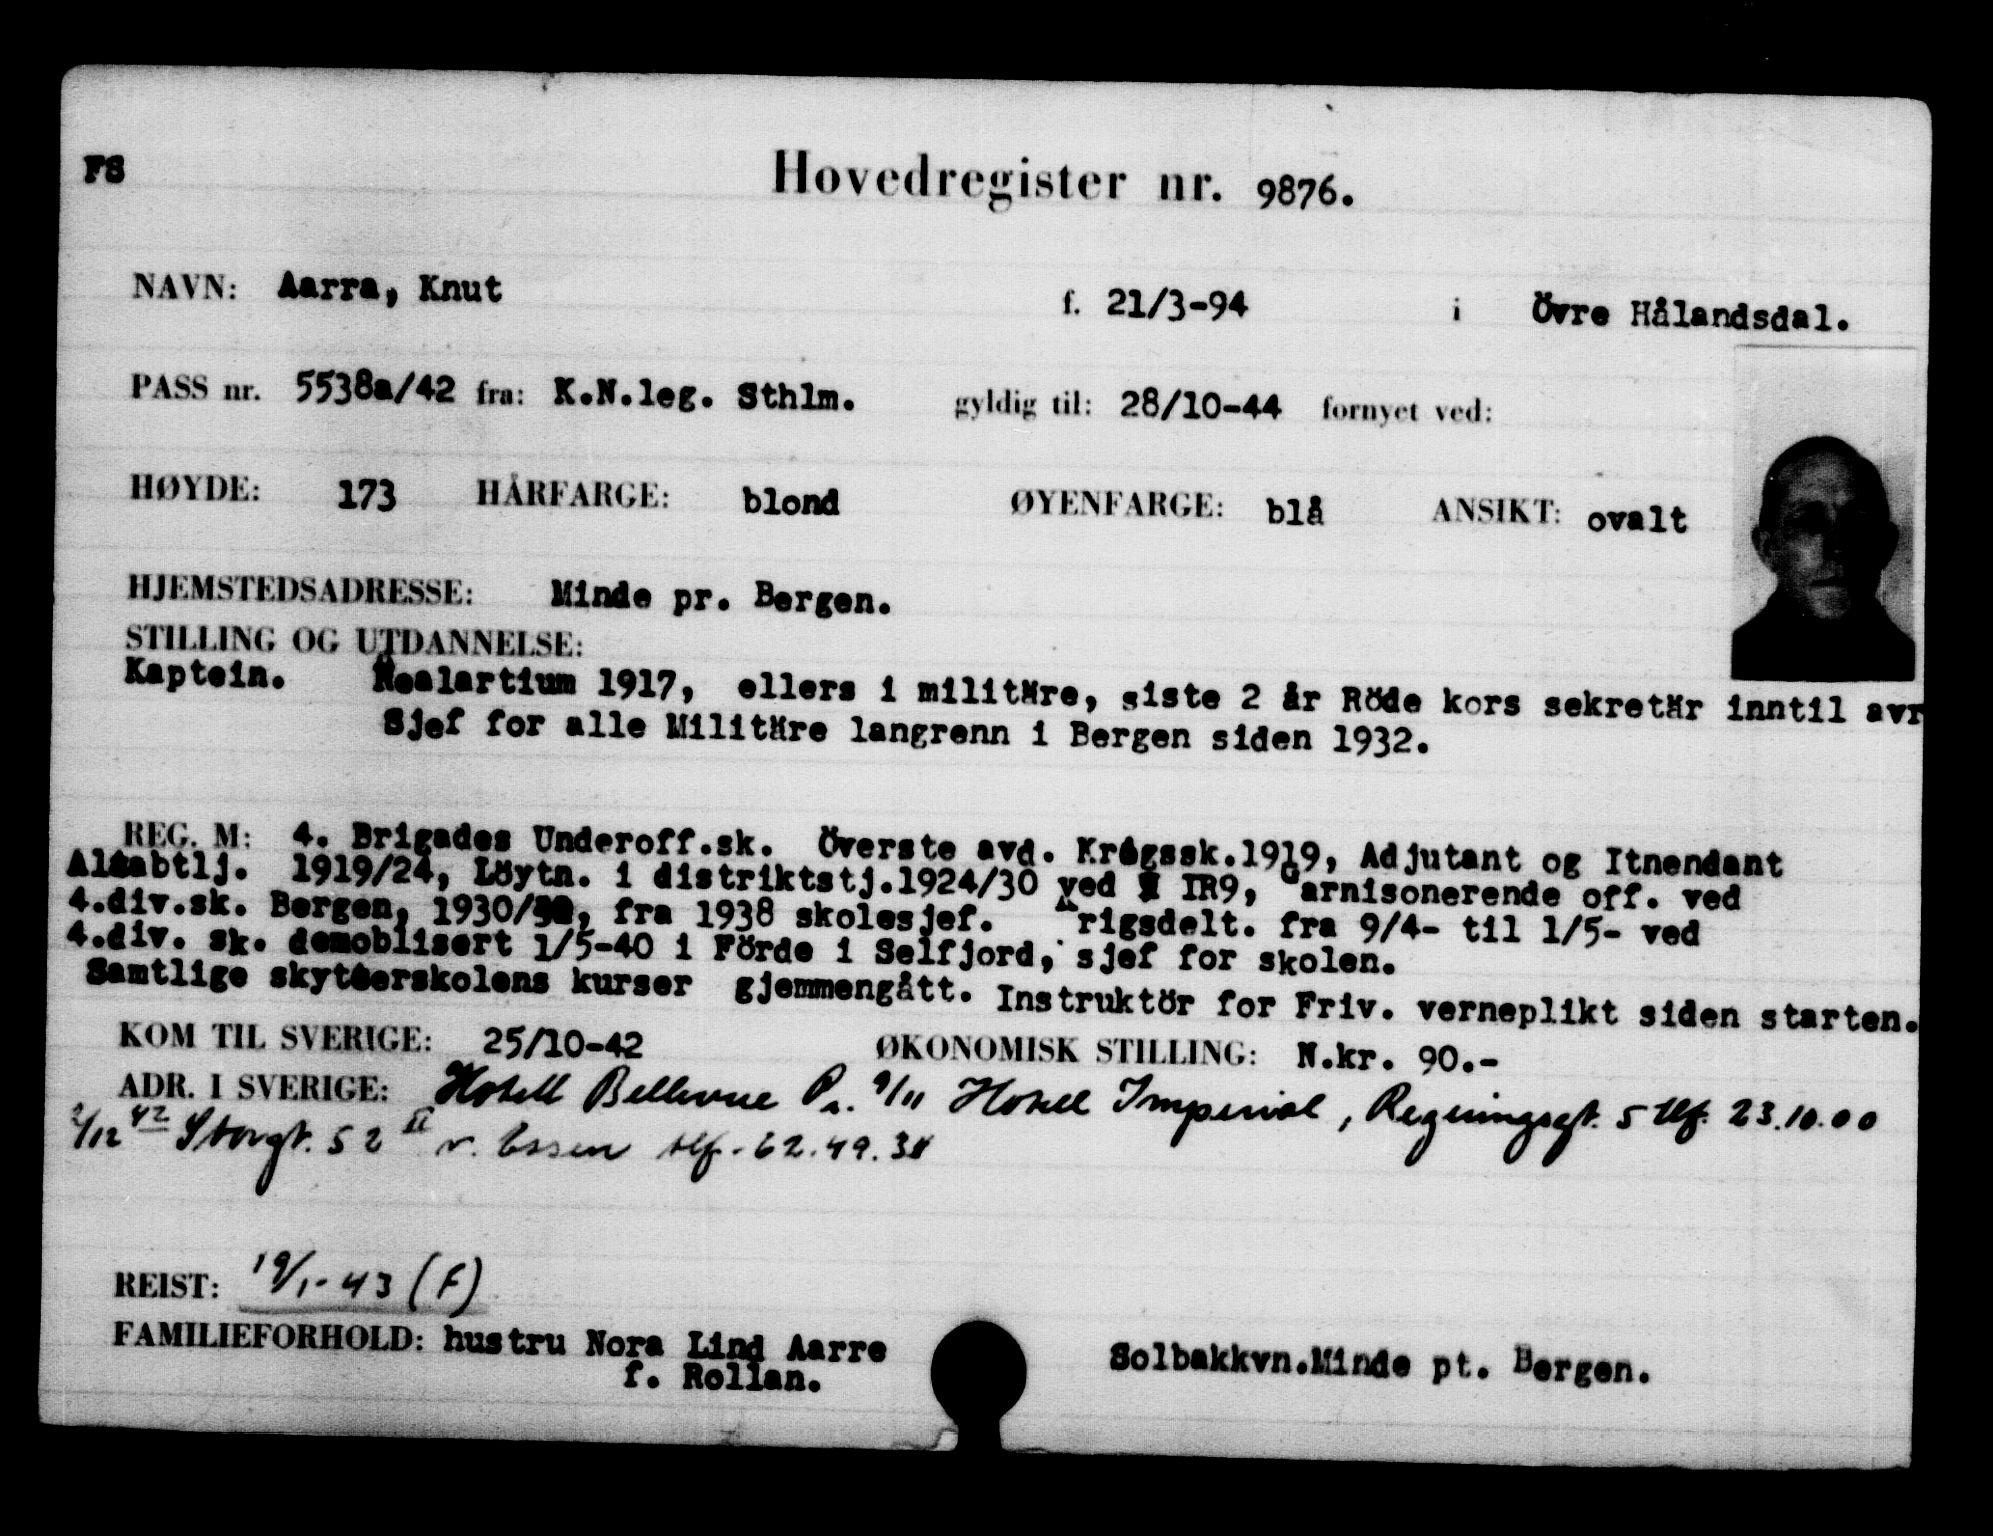 FS
Hovedregister nr. 9876.
NAVN: Aarra, Knut f. 21/3-94 i Övre Hålandsdal.
PASS nr. 5538a/42 fra: K.N.leg. Sthlm. gyldig til: 28/10-44 fornyet ved:
HØYDE: 173 HÅRFARGE: blond ØYENFARGE: blå ANSIKT: ovalt
HJEMSTEDSADRESSE: Minde pr. Bergen.
STILLING OG UTDANNELSE:
Kaptein. Realartium 1917, ellers i militäre, siste 2 år Röde kors sekretär inntil avr
Sjef for alle Militäre langrenn i Bergen siden 1932.
REG. M: 4. Brigades Underoff.sk. Överste avd. Krigssk.1919, Adjutant og Itnendant
Altabtlj. 1919/24, Löytn. i distriktstj.1924/30 ved IR9, Garnisonerende off. ved
4.div.sk. Bergen, 1930/38, fra 1938 skolesjef. Krigsdelt. fra 9/4- til 1/5- ved
4.div. sk. demoblisert 1/5-40 i Förde i Selfjord, sjef for skolen.
Samtlige skytterskolens kurser gjemmengått. Instruktör for Friv. verneplikt siden starten.
KOM TIL SVERIGE: 25/10-42 ØKONOMISK STILLING: N.kr. 90.-
ADR. I SVERIGE: Hotell Bellevue 9/11 Hotell Imperial, Regeringsgt. 5 tlf. 23.10.00
2/12 42 Storgt. 52 II v. Essen tlf. 62.49.38
REIST: 19/1-43 (F)
FAMILIEFORHOLD: hustru Nora Lind Aarre Solbakkvn.Minde pt. Bergen.
f. Rollan.